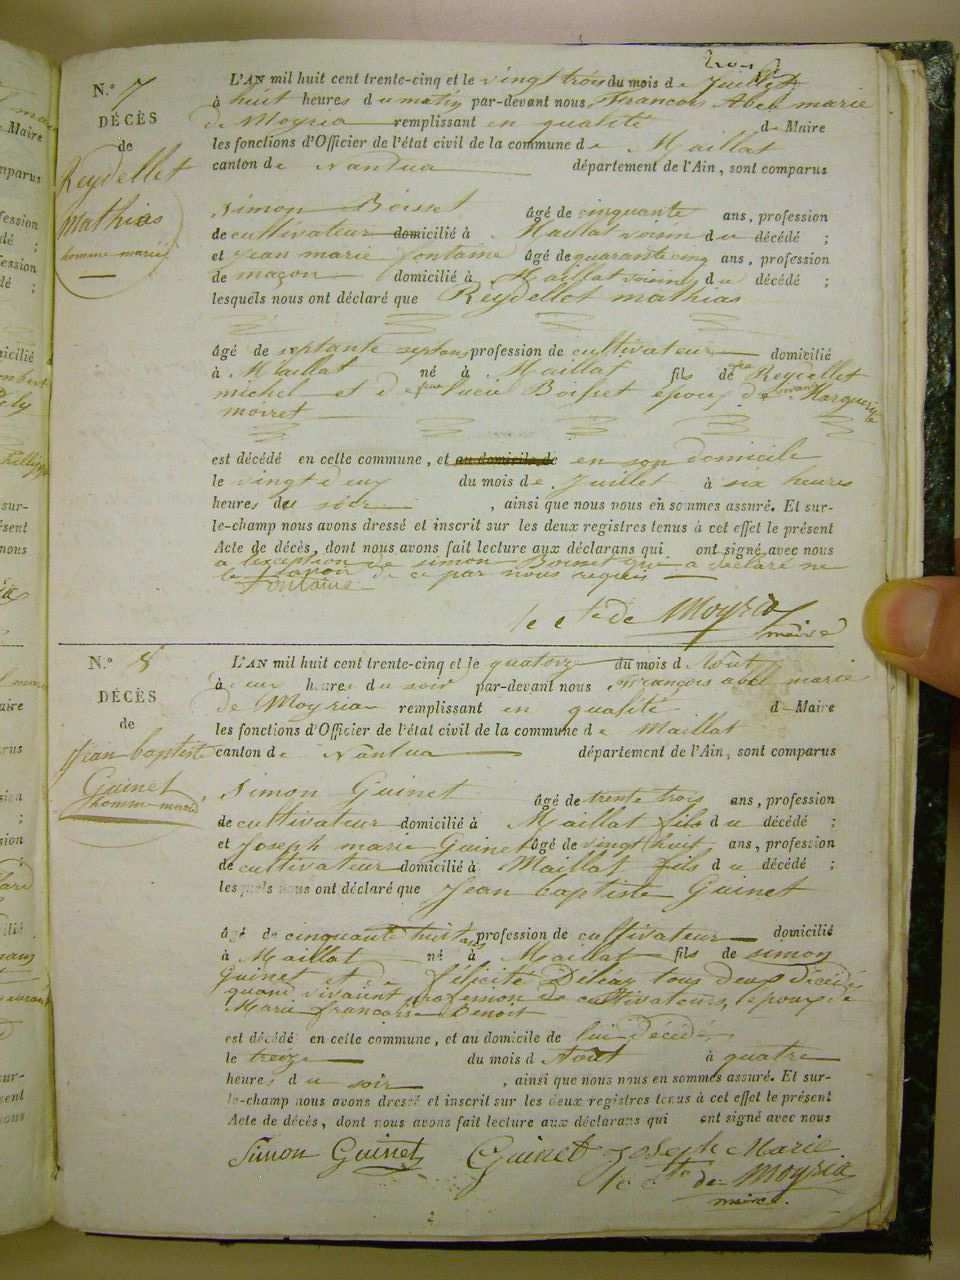 N.° 7
DÉCÈS
de
Reydellet
Mathias
homme marié
L'AN mil huit cent trente-cinq et le vingt trois du mois de Juillet
à huit heures du matin par-devant nous François Abel marie
de Moyria remplissant en qualité de Maire
les fonctions d'Officier de l'état civil de la commune de Maillat
canton de Nantua département de l'Ain, sont comparus
Simon Boisset âgé de cinquante ans, profession
de cultivateur domicilié à Maillat voisin du décédé ;
et Jean marie fontaine âgé de quarante cinq ans, profession
de maçon domicilié à Maillat voisin du décédé ;
lesquels nous ont déclaré que Reydellet mathias
âgé de septante sept ans profession de cultivateur domicilié
à Maillat né à Maillat fils de Reydellet
michel et de feue lucie Boisset époux de vivante Marguerite
moiret
est décédé en cette commune, et au domicile de en son domicile
le vingt deux du mois de Juillet à six heures
heures du soir , ainsi que nous nous en sommes assuré. Et sur-
le-champ nous avons dressé et inscrit sur les deux registres tenus à cet effet le présent
Acte de décès, dont nous avons fait lecture aux déclarans qui ont signé avec nous
a lexception de simon Boisset qui a déclaré ne
le savoir de ce par nous requis
Fontaine
le cte de Moyria
maire
N.° 8
DÉCÈS
de
Jean baptiste
Guinet
homme marié
L'AN mil huit cent trente-cinq et le quatorze du mois d Août
à heures du soir par-devant nous François abel marie
de Moyria remplissant en qualité de Maire
les fonctions d'Officier de l'état civil de la commune de Maillat
canton de Nantua département de l'Ain, sont comparus
Simon Guinet âgé de trente trois ans, profession
de cultivateur domicilié à Maillat fils du décédé ;
et Joseph marie Guinet âgé de vingt huit ans, profession
de cultivateur domicilié à Maillat fils du décédé ;
lesquels nous ont déclaré que Jean baptiste Guinet
âgé de cinquante huit ans profession de cultivateur domicilié
à Maillat né à Maillat fils de simon
Guinet et de félicité tous deux décédés
quand vivaient profession de cultivateurs, époux de
Marie françoise Benoit
est décédé en cette commune, et au domicile de lui Décédé
le treize du mois d Août à quatre
heures du soir , ainsi que nous nous en sommes assuré. Et sur-
le-champ nous avons dressé et inscrit sur les deux registres tenus à cet effet le présent
Acte de décès, dont nous avons fait lecture aux déclarans qui ont signé avec nous
Simon Guinet Guinet Joseph Marie
le cte de Moyria
maire.